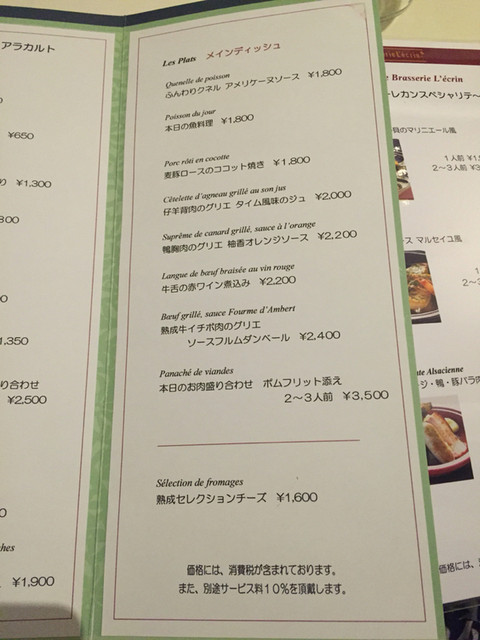 アラカルト
¥650
¥1,300
り合わせ
¥2,500
¥1,900
Les Plats メインディッシュ
Quenelle de poisson
ふんわりクネル アメリケーヌソース ¥1,800
Poisson du jour
本日の魚料理 ¥1,800
Porc rôti en cocotte
麦豚ロースのココット焼き ¥1,800
Cötelette d'agneau grillé au son jus
仔羊背肉のグリエ タイム風味のジュ ¥2,000
Suprême de canard grillé, sauce à l'orange
鴨胸肉のグリエ 柚香オレンジソース ¥2,200
Langue de bœuf braisée au vin rouge
牛舌の赤ワイン煮込み ¥2,200
Bœuf grillé, sauce Fourme d'Ambert
熟成牛イチボ肉のグリエ
ソースフルムダンベール ¥2,400
Panaché de viandes
本日のお肉盛り合わせ ポムフリット添え
2～3人前 ¥3,500
Sélection de fromages
熟成セレクションチーズ ¥1,600
価格には、消費税が含まれております。
また、別途サービス料10%を頂戴します。
Brasserie L'écrin
レカンスペシャリテ～
貝のマリニエール風
1人前
2～3人前
ス マルセイユ風
Alsacienne
ジ・鴨・豚バラ肉
価格には、